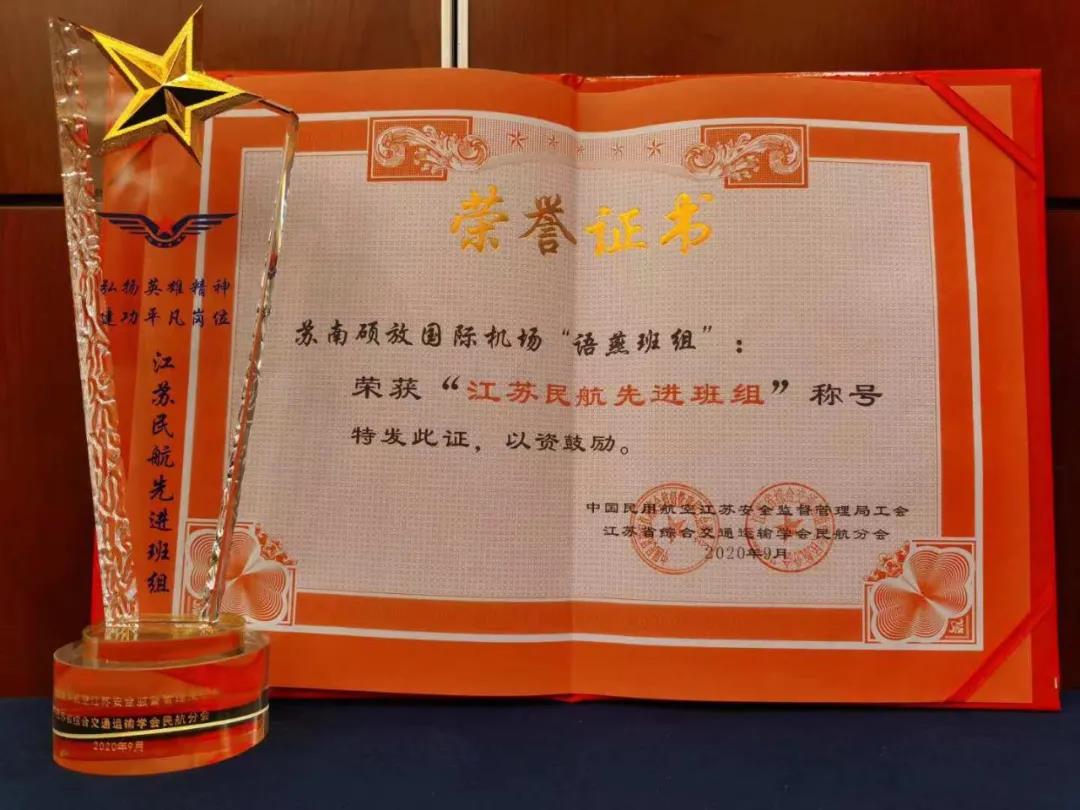 弘扬英雄精神
建功平凡岗位
江苏民航先进班组
江苏安全监督管理
江苏省综合交通运输学会民航分会
2020年9月
荣誉证书
苏南硕放国际机场“语燕班组”：
荣获“江苏民航先进班组”称号
特发此证，以资鼓励。
中国民用航空江苏安全监督管理局工会
江苏省综合交通运输学会民航分会
2020年9月